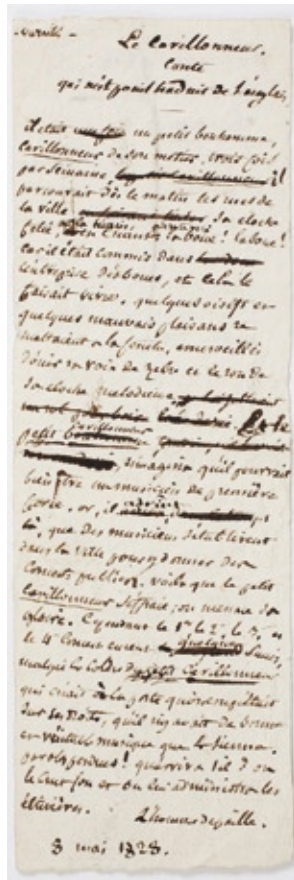 Le Carillonneur.
Conte
qui n'est point traduit de l'anglais.
il était un petit bonhomme,
carillonneur de son metier, trois fois
par semaine, il
parcourait dès le matin les rues de
la ville sa cloche
fêlée à la main, la boue! la boue!
car il était commis dans
l'entreprise des boues, et cela le
faisait vivre. quelques oisifs et
quelques mauvais plaisans se
mettaient à la fenêtre, émerveillés
d'ouir sa voix de et le son de
sa cloche quotidienne, Le
petit carillonneur
s'imagina qu'il pourrait
bien être un musicien de première
force. or, il
que des musiciens étant venus
dans la ville pour y donner des
Concerts publics, voilà que le petit
Carillonneur s'effraie; on menace sa
gloire. Cependant le 1er le 2e le 3e et
le 4e Concert eurent quelque succès,
malgré la colère du petit Carillonneur
qui criait à la porte qu'on s'égosillait
sur les toits, qu'il n'y avait de bonne
et véritable musique que la sienne.
qu'arriva t'il? on
le crut fou et on lui administra les
étrivières.
L'homme de paille.
8 mai 1828.